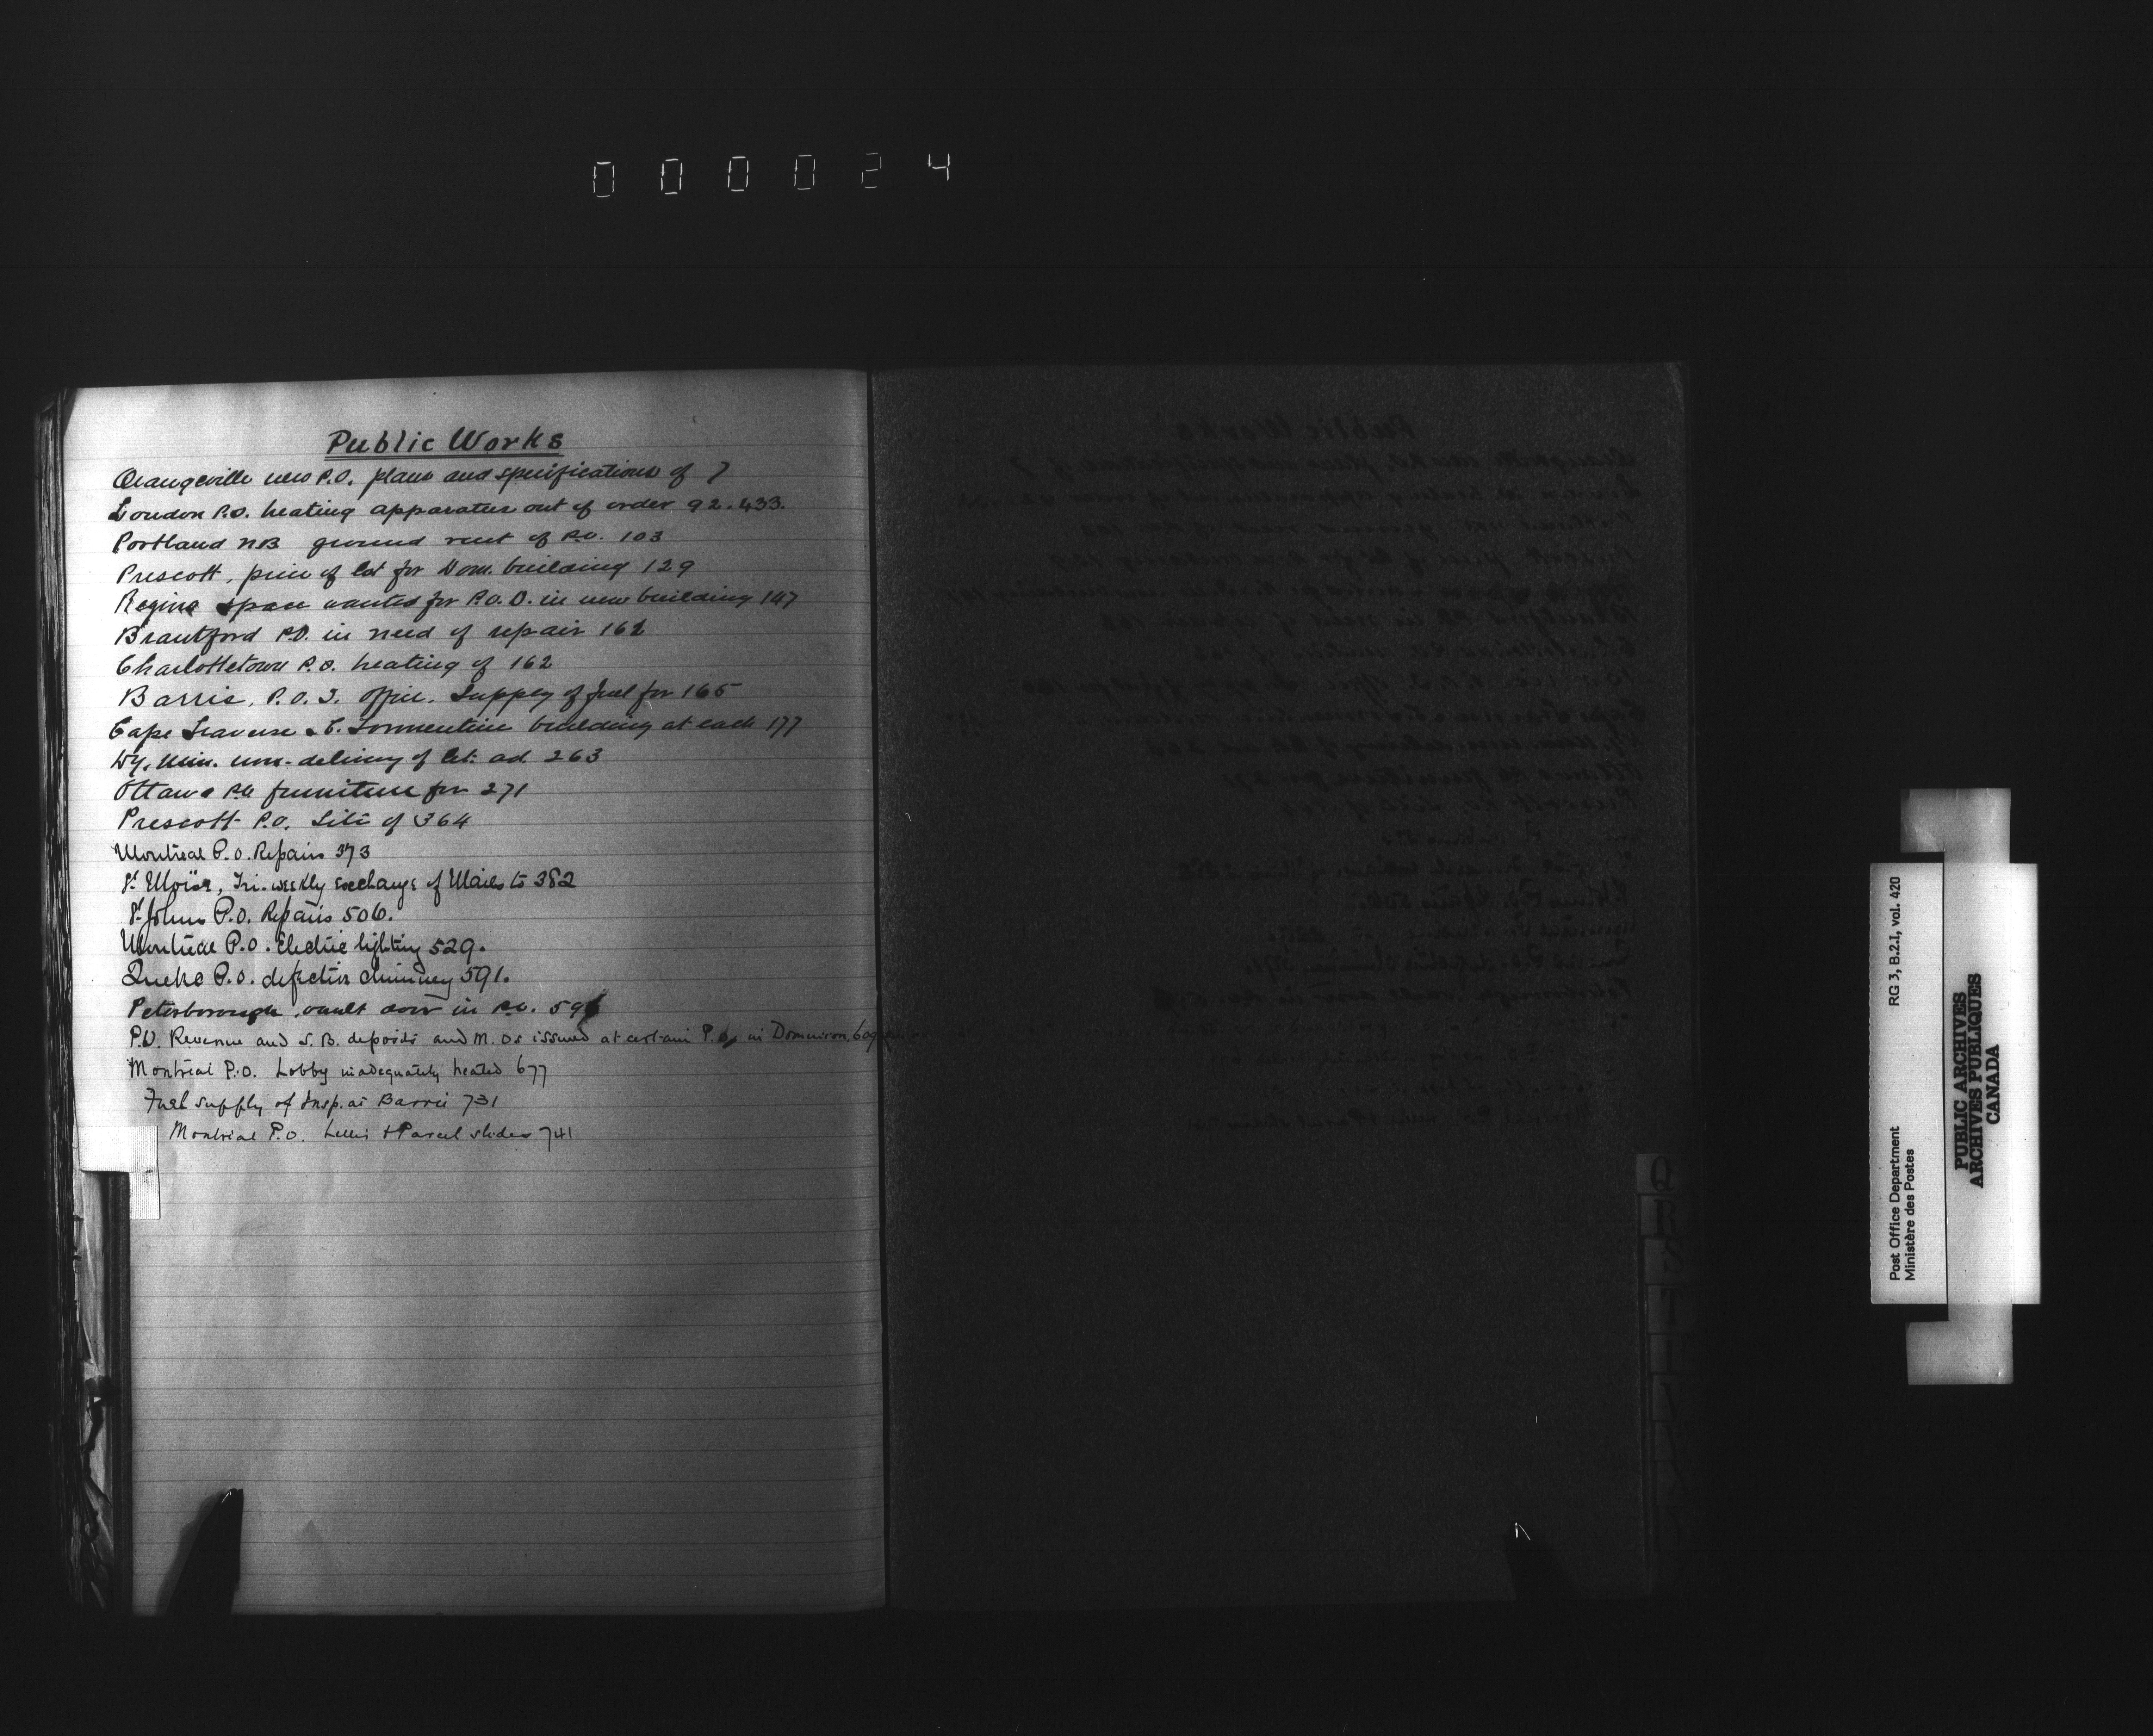 000024
Public Works
Orangeville new P.O. plans and specifications of 7
London P.O. heating apparatus out of order 92.433.
Portland NB ground rent of P.O. 103
Prescott, price of lot for Dom. building 129
Regina space wanted for P.O.D. in new building 147
Brantford P.O. in need of repair 162
Charlottetown P.O. heating of 162
Barrie, P.O.I. Office. Supply of fuel for 165
Cape Traverse & C. Tormentine building at each 177
Dy. Min. non-delivery of let. ad. 263
Ottawa P.O. furniture for 271
Prescott P.O. Site of 364
Montreal P.O. Repairs 373
St Moïse, Tri-weekly exchange of Mails to 382
St Johns P.O. Repairs 506.
Montreal P.O. Electric lighting 529.
Quebec P.O. defective chimney 591.
Peterborough, vault door in P.O.
P.O. Revenue and S.B. deposits and M.Os issued at certain P.Os in Dominion
Montreal P.O. Lobby inadequately heated 677
Fuel supply of Insp. at Barrie 731
Montreal P.O. Letter & Parcel slides 741
Q
R
S
T
Post Office Department
Ministère des Postes
RG 3, B.2.I, vol. 420
PUBLIC ARCHIVES
ARCHIVES PUBLIQUES
CANADA